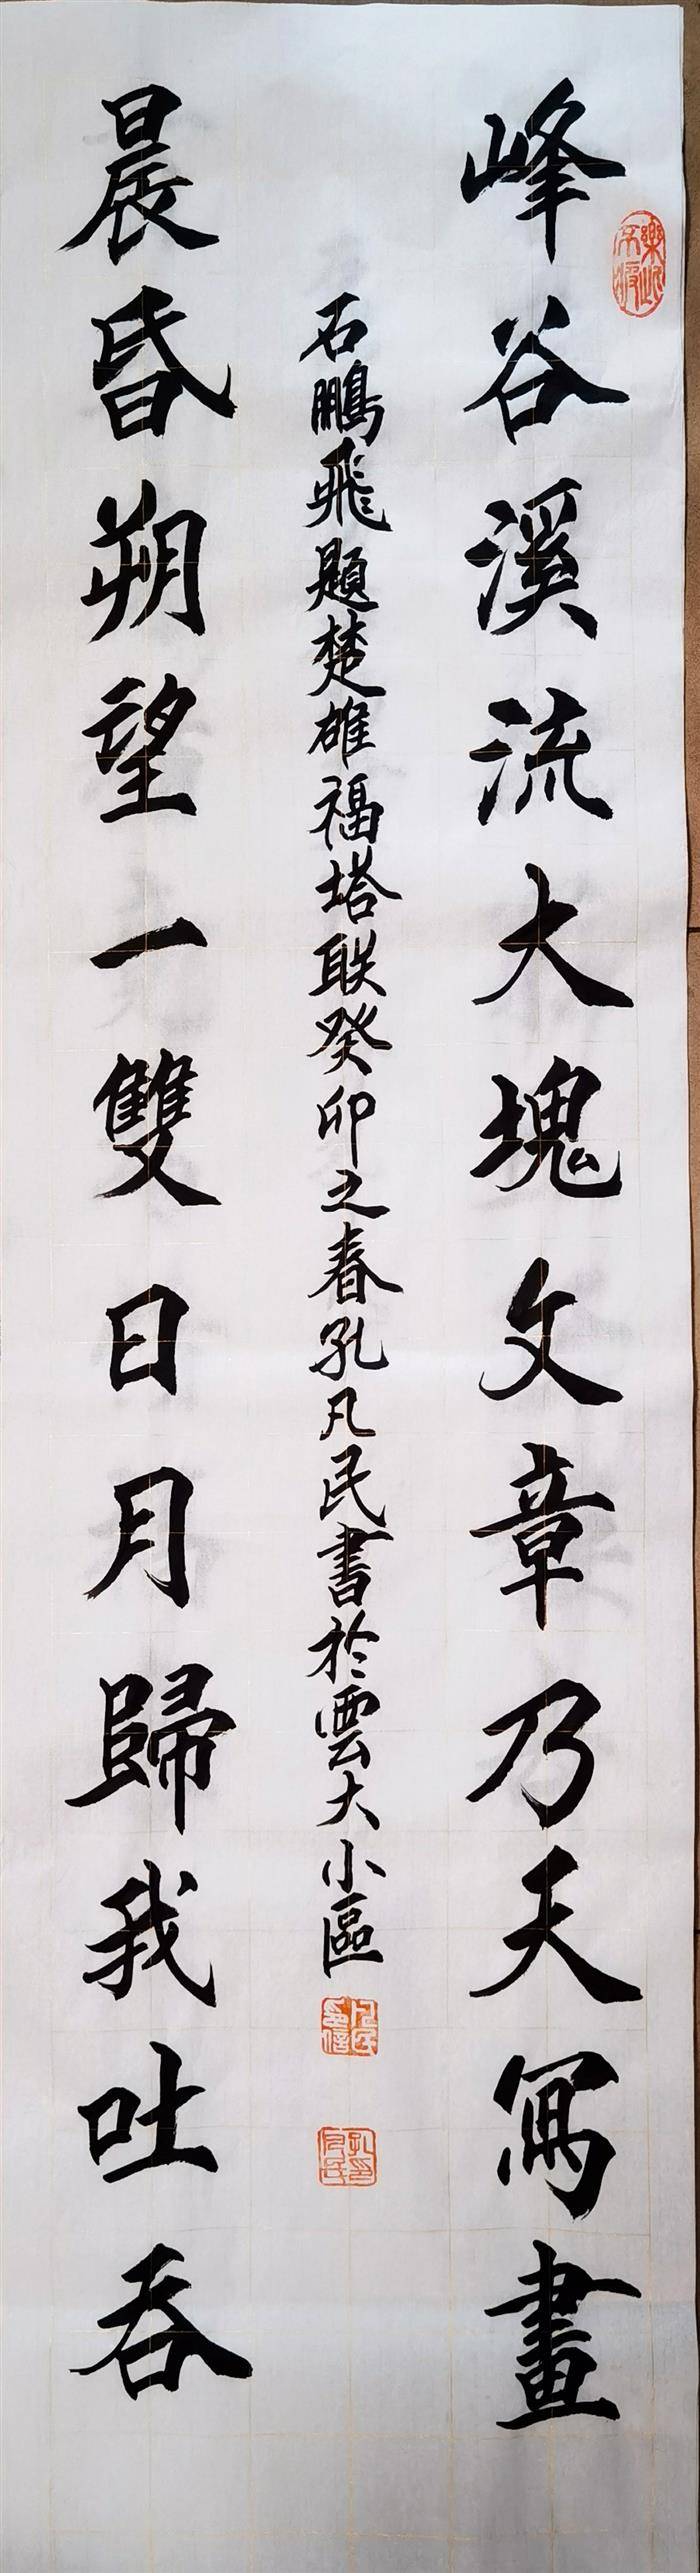 峰谷溪流大塊文章乃天寫畫
石鵬飛題楚雄福塔联癸卯之春孔凡民書於雲大小區
晨昏朔望一雙日月歸我吐吞